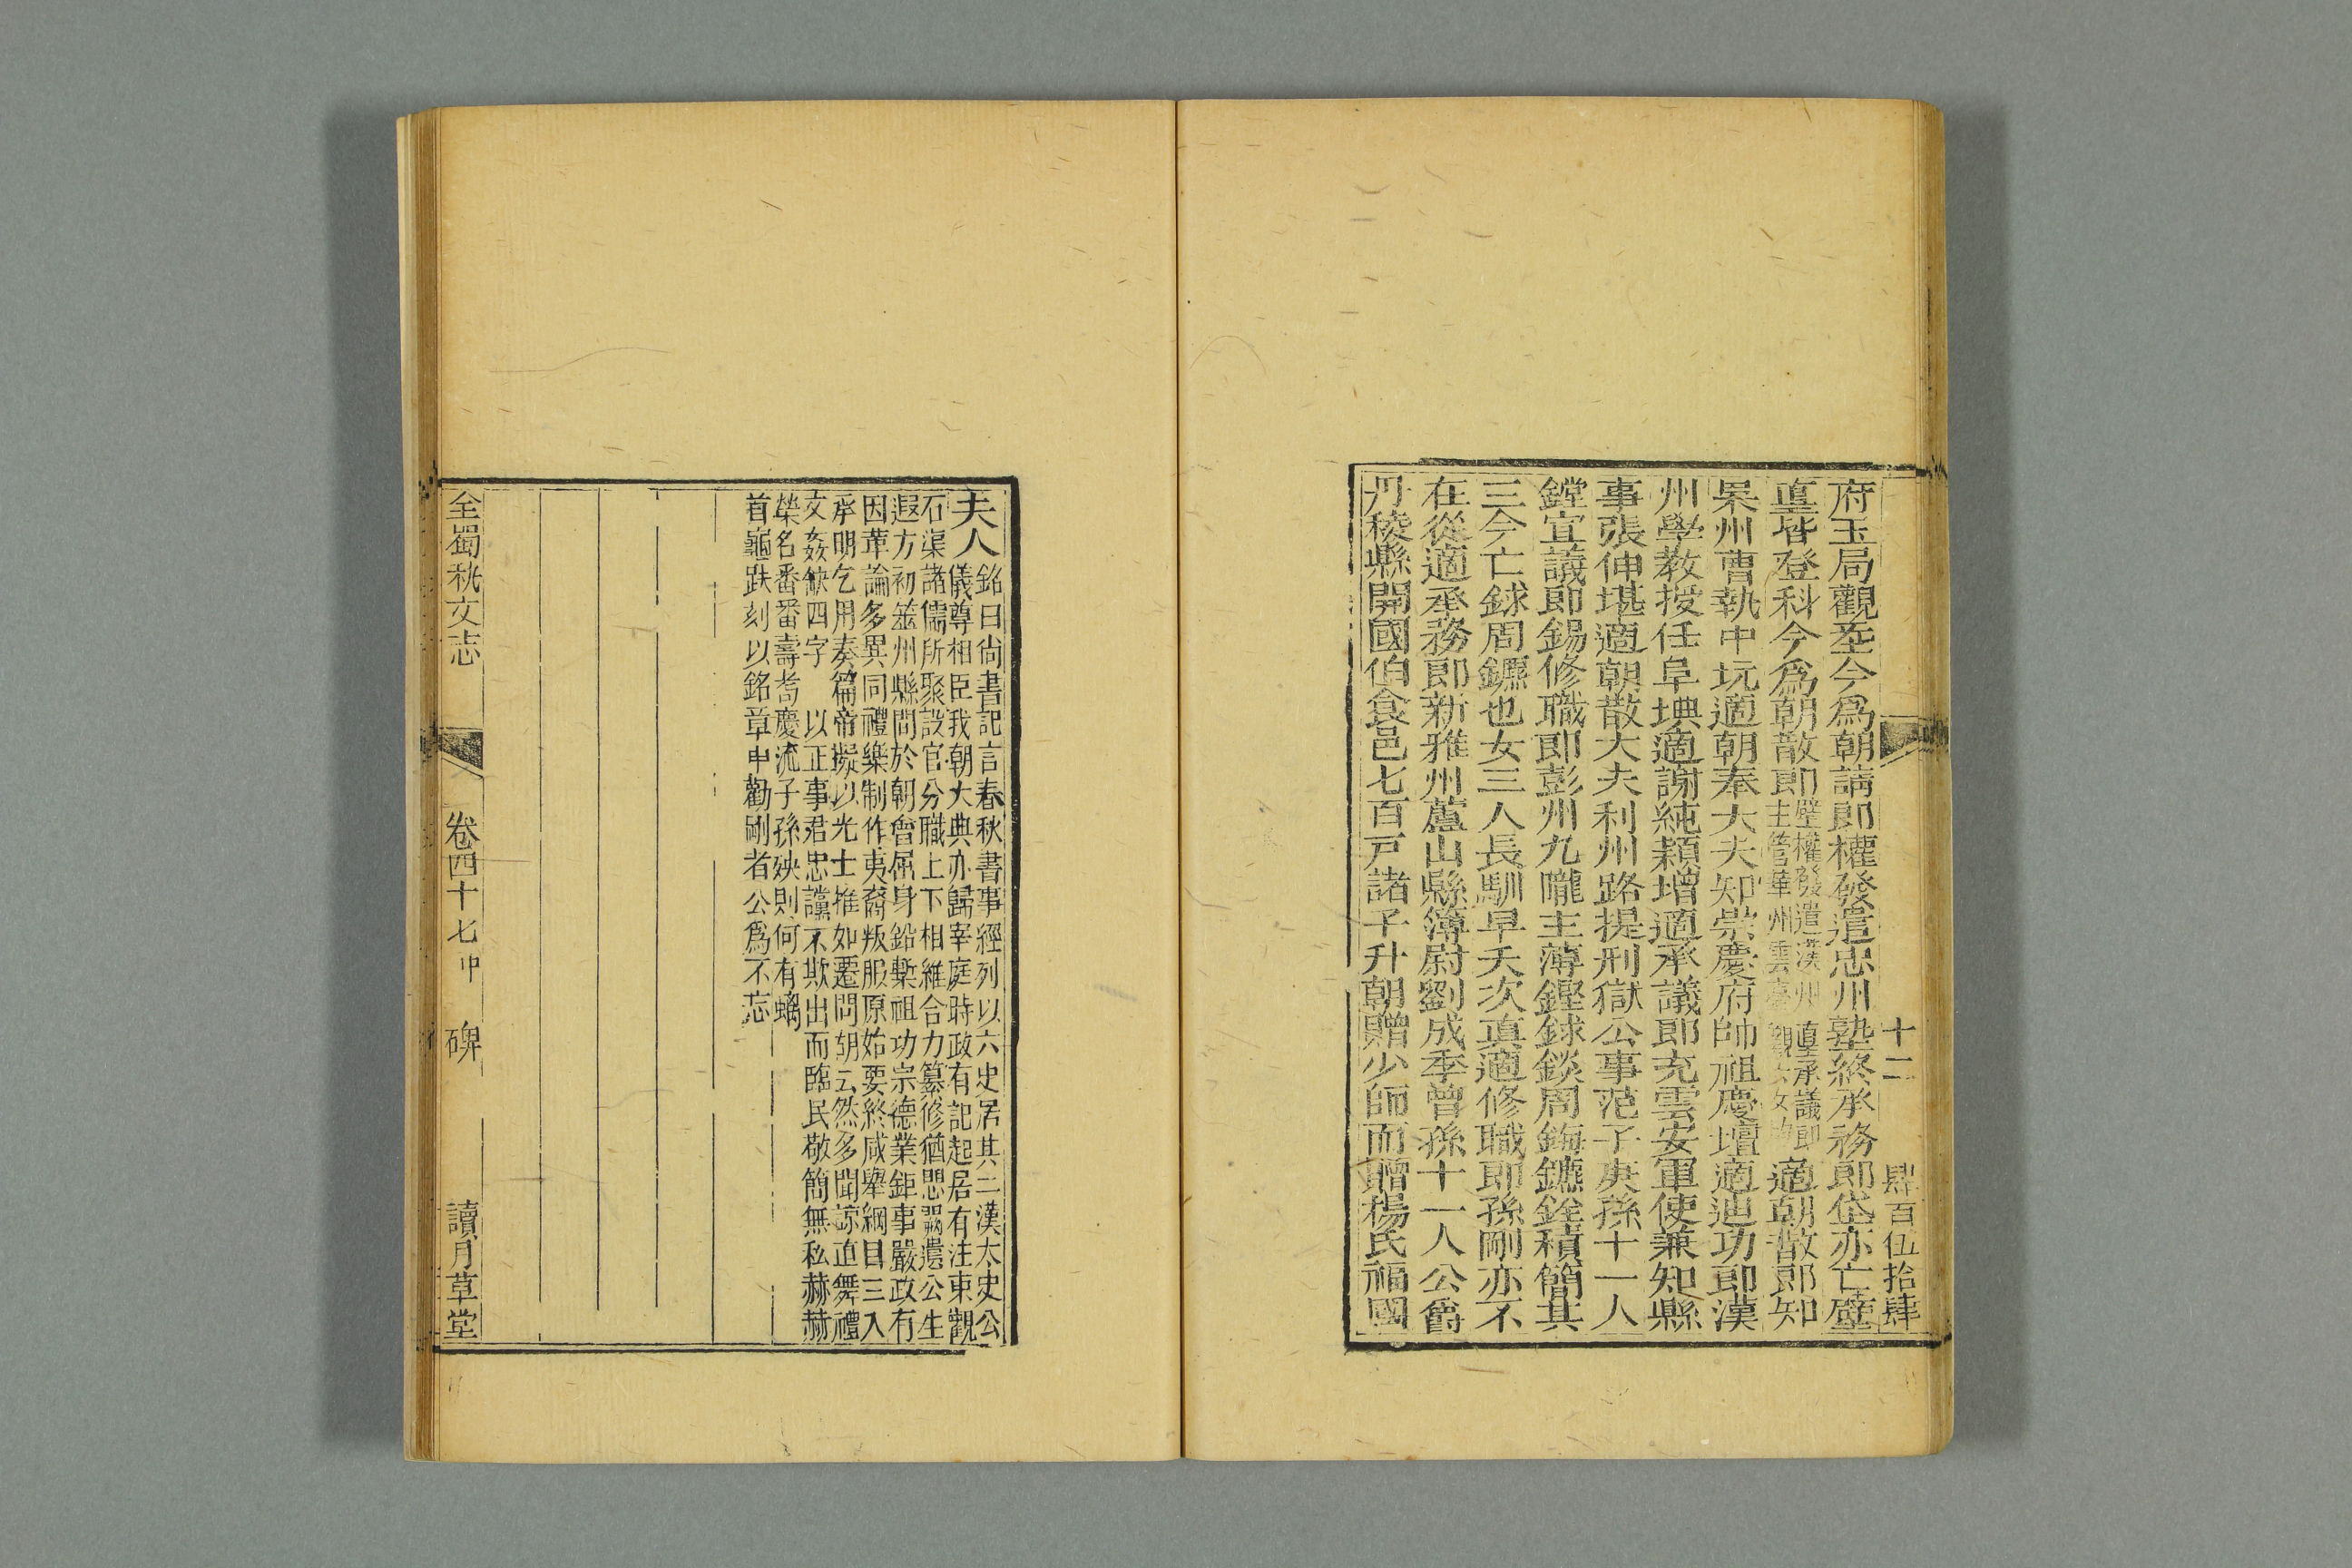 十二 肆百伍拾肆
府玉局觀垂今爲朝請郎權發遣忠州塾終承務郎垈亦亡壁
堇皆登科今爲朝散郎
壁權發遣漢州堇承議郎
主管華州雲臺觀女
適朝散郎知
果州曹執中坃適朝奉大夫知崇慶府帥祖慶壇適迪功郎漢
州學教授任阜㙉適謝純穎增適承議郎充雲安軍使兼知縣
事張伸堪適朝散大夫利州路提刑獄公事范子庚孫十一人
鏜宣議郎錫修職郎彭州九隴主薄鏗錸錟周鋂鑣銓積簡其
三今亡錸周鑣也女三人長馴早夭次真適修職郎孫剛亦不
在從適承務郎新雅州蘆山縣簿尉劉成季曾孫十一人公爵
丹稜縣開國伯食邑七百戸諸子升朝贈少師而贈楊氏福國
夫人
銘曰尚書記言春秋書事經列以六史居其二漢太史公
儀尊相臣我朝大典亦歸宰庭時政有記起居有注東觀
石渠諸儒所聚設官分職上下相維合力纂修猶思闕遺公生
遐方初筮州縣間於朝會屈身鉛槧祖功宗德業鉅事嚴政有
因革論多異同禮樂制作夷裔叛服原始要終咸舉綱目三入
承明乞用奏篇帝擬以光士推如遷問朝云然多聞諒直舞禮
文姦缺四字 以正事君忠讜不欺出而臨民敬簡無私赫赫
榮名番番壽耈慶流子孫殃則何有螭
首龜趺刻以銘章申勸剛者公爲不忘
全蜀秇文志 卷四十七中 碑 讀月草堂